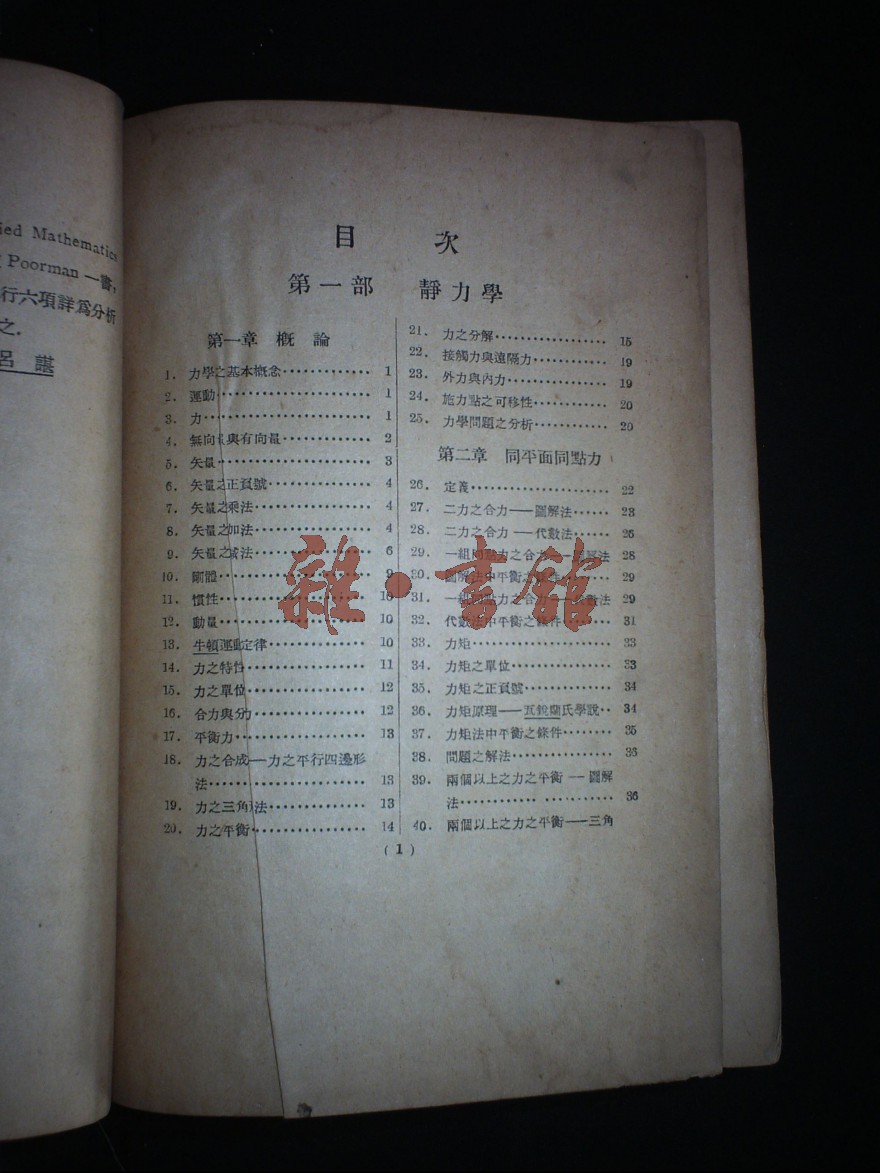 ied Mathematics
Poorman 一書,
行六項詳爲分析
之.
呂諶
目 次
第一部 靜力學
第一章 概論
1. 力學之基本概念············· 1
2. 運動·················· 1
3. 力··················· 1
4. 無向量與有向量··········· 2
5. 矢量·················· 3
6. 矢量之正負號············ 4
7. 矢量之乘法············· 4
8. 矢量之加法············· 4
9. 矢量之減法············· 6
10. 剛體················· 9
11. 慣性················· 10
12. 動量················· 10
13. 牛頓運動定律············ 10
14. 力之特性·············· 11
15. 力之單位·············· 12
16. 合力與分力············· 12
17. 平衡力················ 13
18. 力之合成——力之平行四邊形
法··················· 13
19. 力之三角形法············ 13
20. 力之平衡·············· 14
21. 力之分解·············· 15
22. 接觸力與遠隔力··········· 19
23. 外力與內力············· 19
24. 施力點之可移性··········· 20
25. 力學問題之分析··········· 20
第二章 同平面同點力
26. 定義················· 22
27. 二力之合力——圖解法······· 23
28. 二力之合力——代數法······· 26
29. 一組同點力之合力——圖解法 28
30. 圖解法中平衡之條件········ 29
31. 一組同點力之合力——代數法 29
32. 代數法中平衡之條件········ 31
33. 力矩················· 33
34. 力矩之單位············· 33
35. 力矩之正負號············ 34
36. 力矩原理——瓦銳蘭氏學說·· 34
37. 力矩法中平衡之條件········ 35
38. 問題之解法············· 36
39. 兩個以上之力之平衡——圖解
法··················· 36
40. 兩個以上之力之平衡——三角
( 1 )
雜·書館